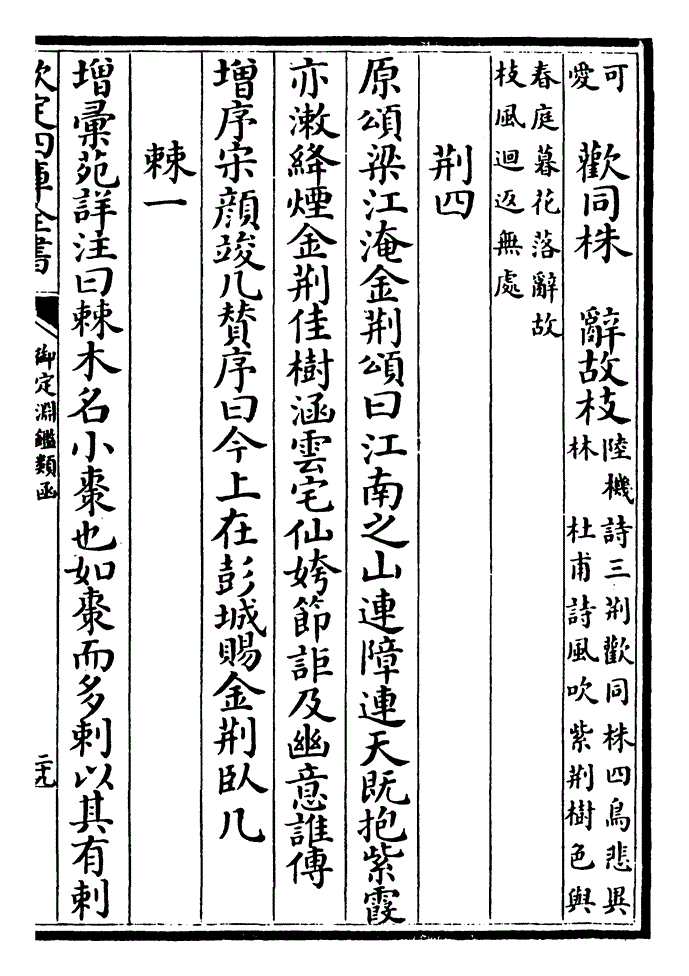 可愛 歡同株 辭故枝 陸機詩三荆歡同株四鳥悲異林杜甫詩風吹紫荆樹色與
春庭暮花落辭故
枝風迴返無處
荆四
原頌梁江淹金荆頌曰江南之山連障連天既抱紫霞
亦漱絳煙金荆佳樹涵雲宅仙姱節詎及幽意誰傳
增序宋顔竣几賛序曰今上在彭城賜金荆臥几
棘一
增彚苑詳注曰棘木名小棗也如棗而多刺以其有刺
欽定四庫全書 御定淵鑑類函